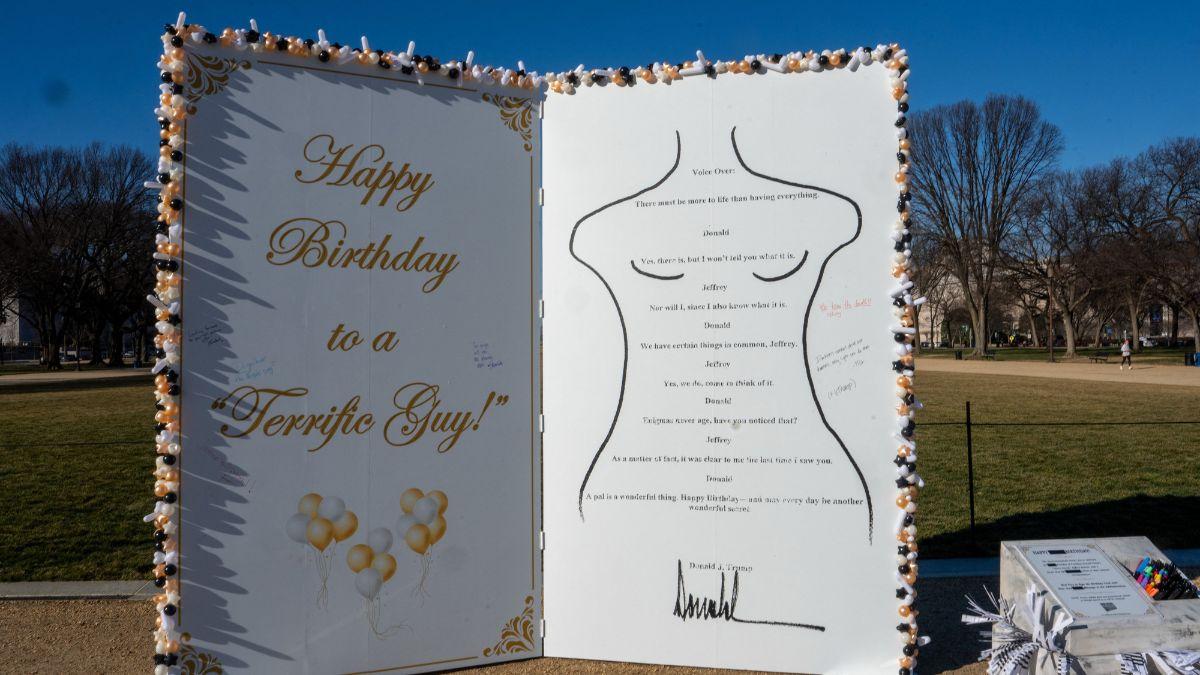 Happy
Birthday
to a
"Terrific Guy!"
Voice Over:
There must be more to life than having everything.
Donald
Yes, there is, but I won't tell you what it is.
Jeffrey
Nor will I, since I also know what it is.
Donald
We have certain things in common, Jeffrey.
Jeffrey
Yes, we do, come to think of it.
Donald
Enigmas never age, have you noticed that?
Jeffrey
As a matter of fact, it was clear to me the last time I saw you.
Donald
A pal is a wonderful thing. Happy Birthday — and may every day be another
wonderful secret
Donald J. Trump
Donald
HAPPY